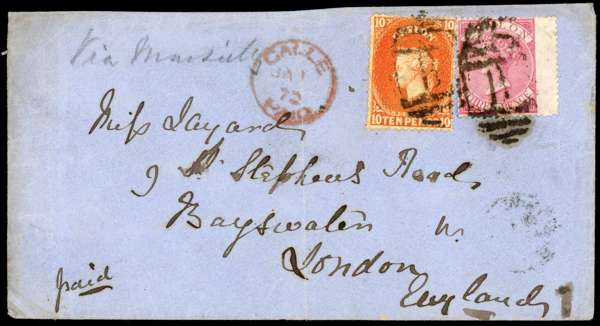 Via Marseille
GALLE
JA 1
72
PAID
10 CEYLON 10
10 TEN PENCE 10
CEYLON
B
Miss Layard
9 St Stephens Road
Bayswater W.
London
England
paid
1